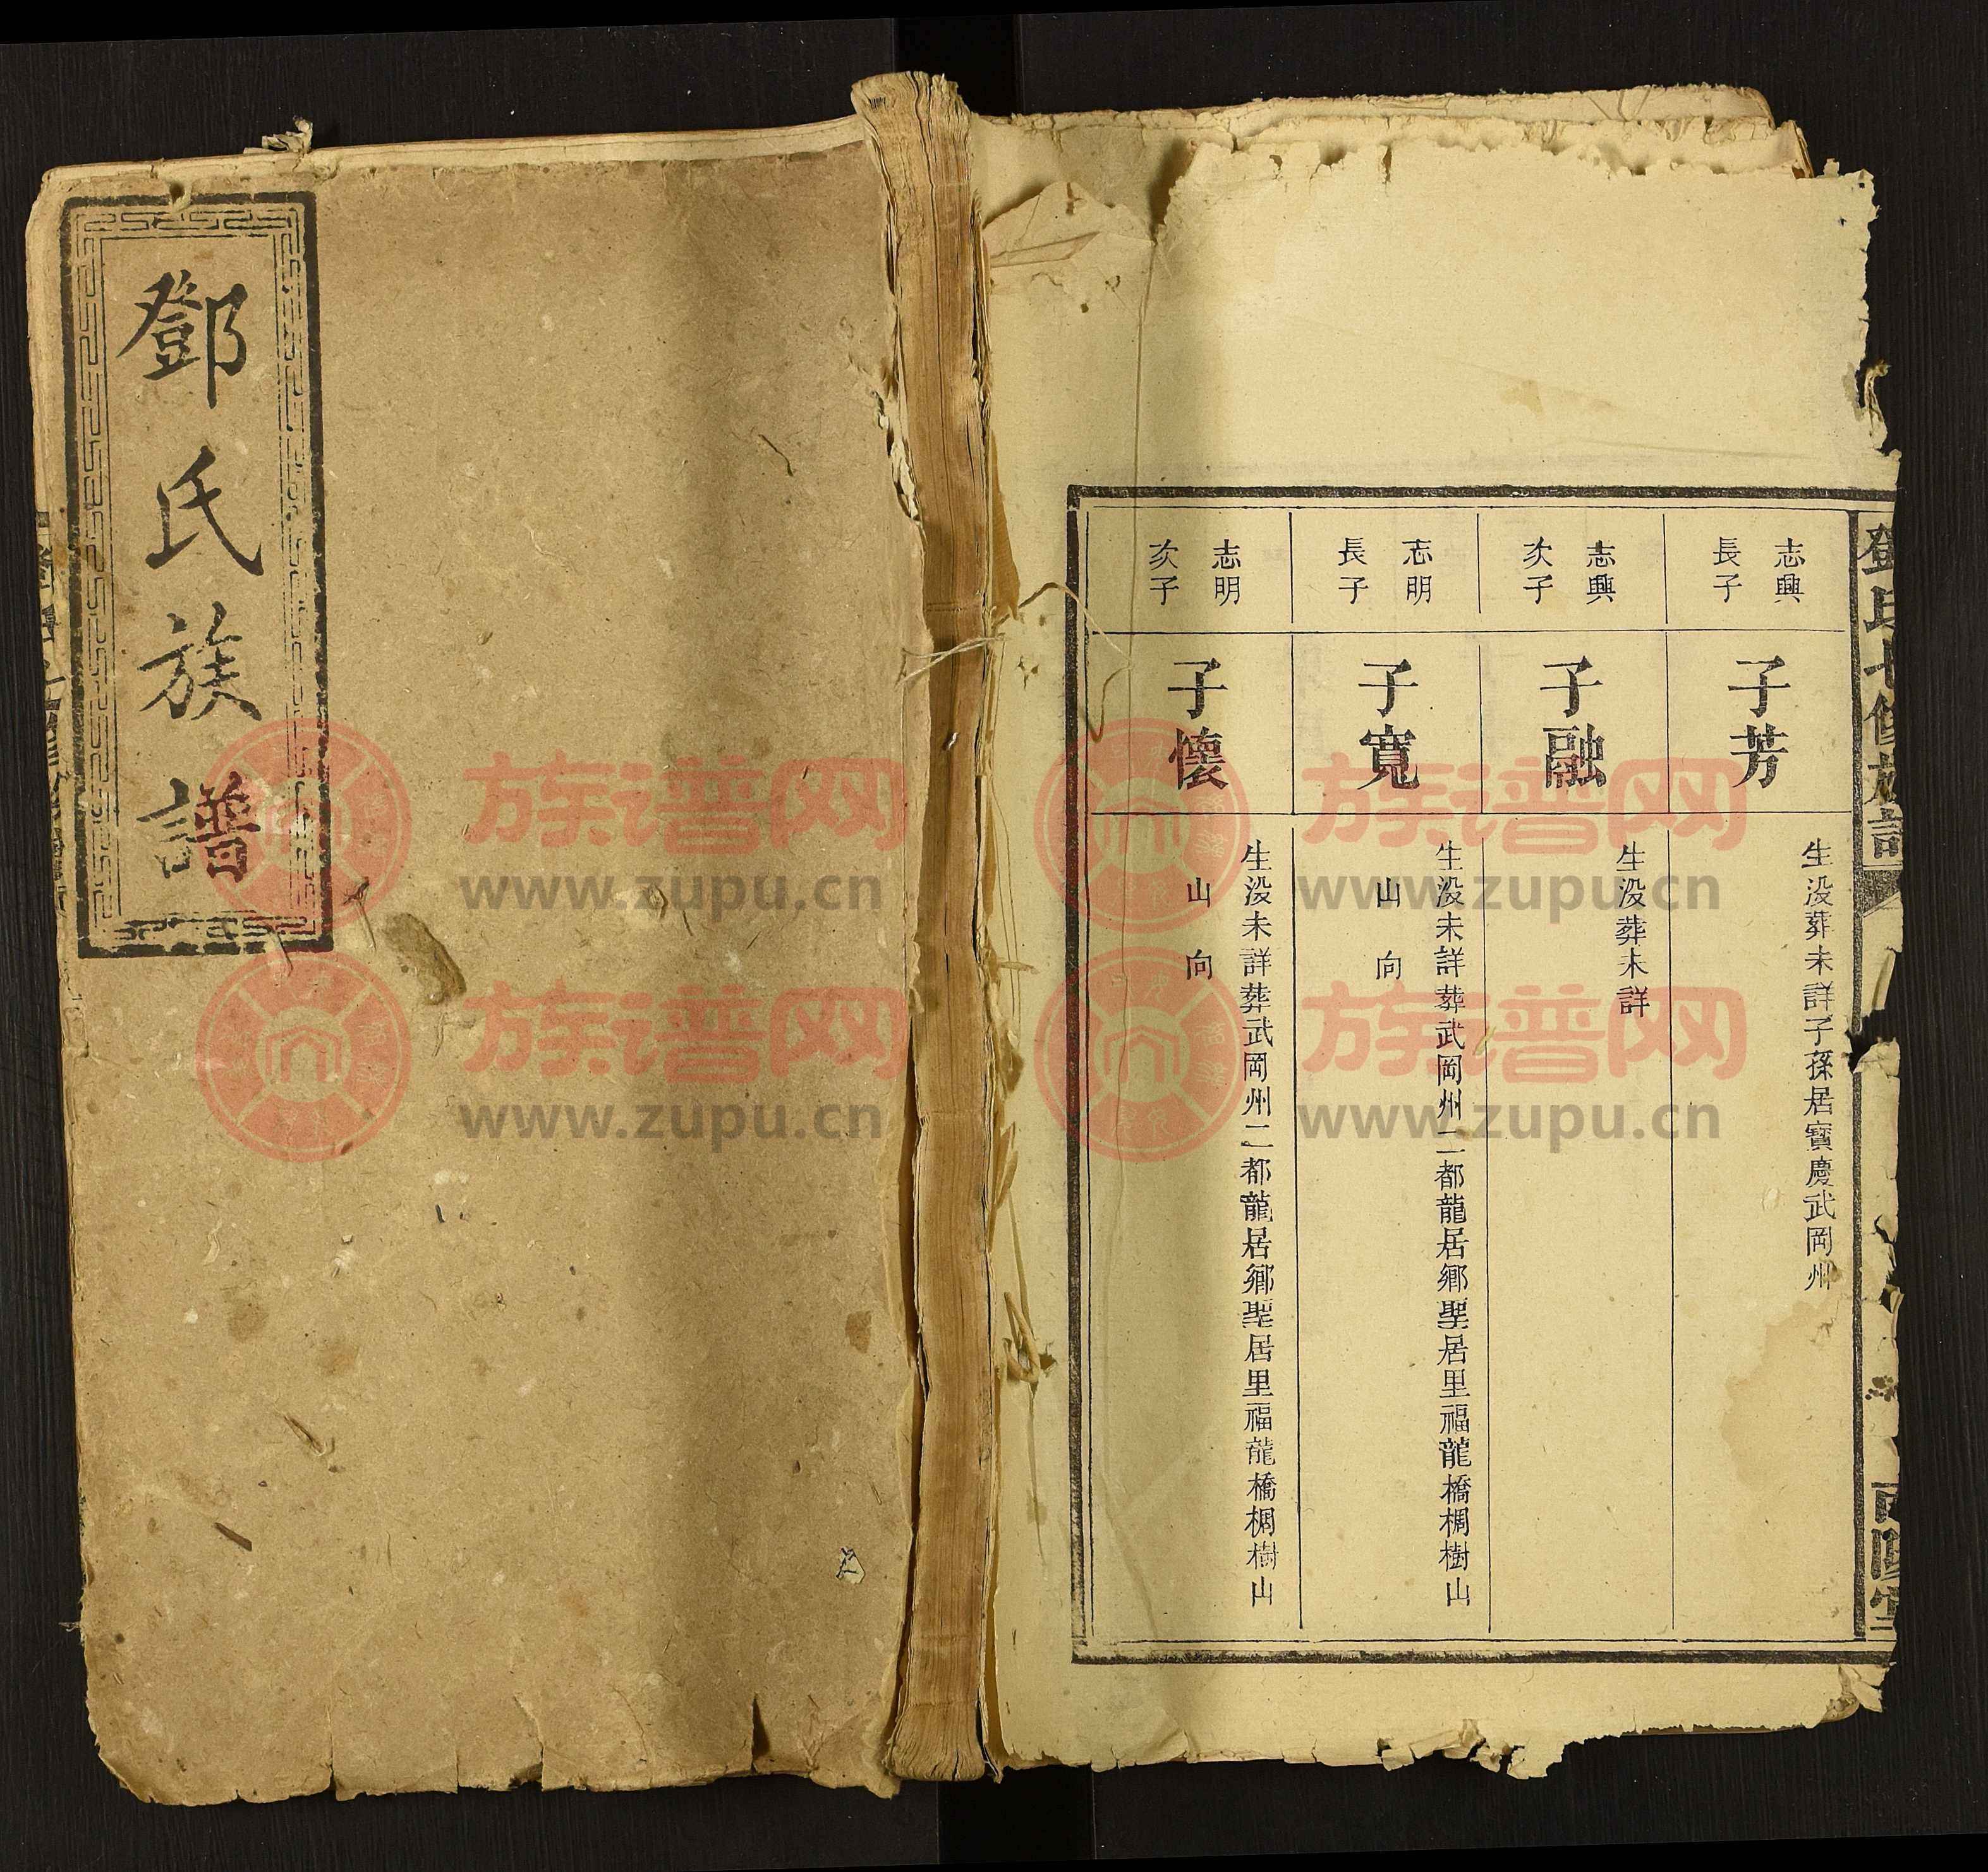 鄧氏族譜
鄧氏七修族譜
志興
長子
子芳
生没葬未詳子孫居寶慶武岡州
志興
次子
子融
生没葬未詳
志明
長子
子寬
生没未詳葬武岡州二都龍居鄉聖居里福龍橋椆樹山
山向
志明
次子
子懷
生没未詳葬武岡州二都龍居鄉聖居里福龍橋椆樹山
山向
族谱网
www.zupu.cn
族谱网
www.zupu.cn
族谱网
www.zupu.cn
族谱网
www.zupu.cn